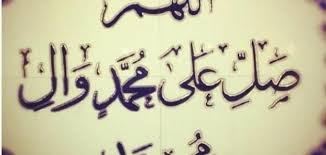 اللهم
صَلِّ عَلىٰ مُحَمَّدٍ وَالِ